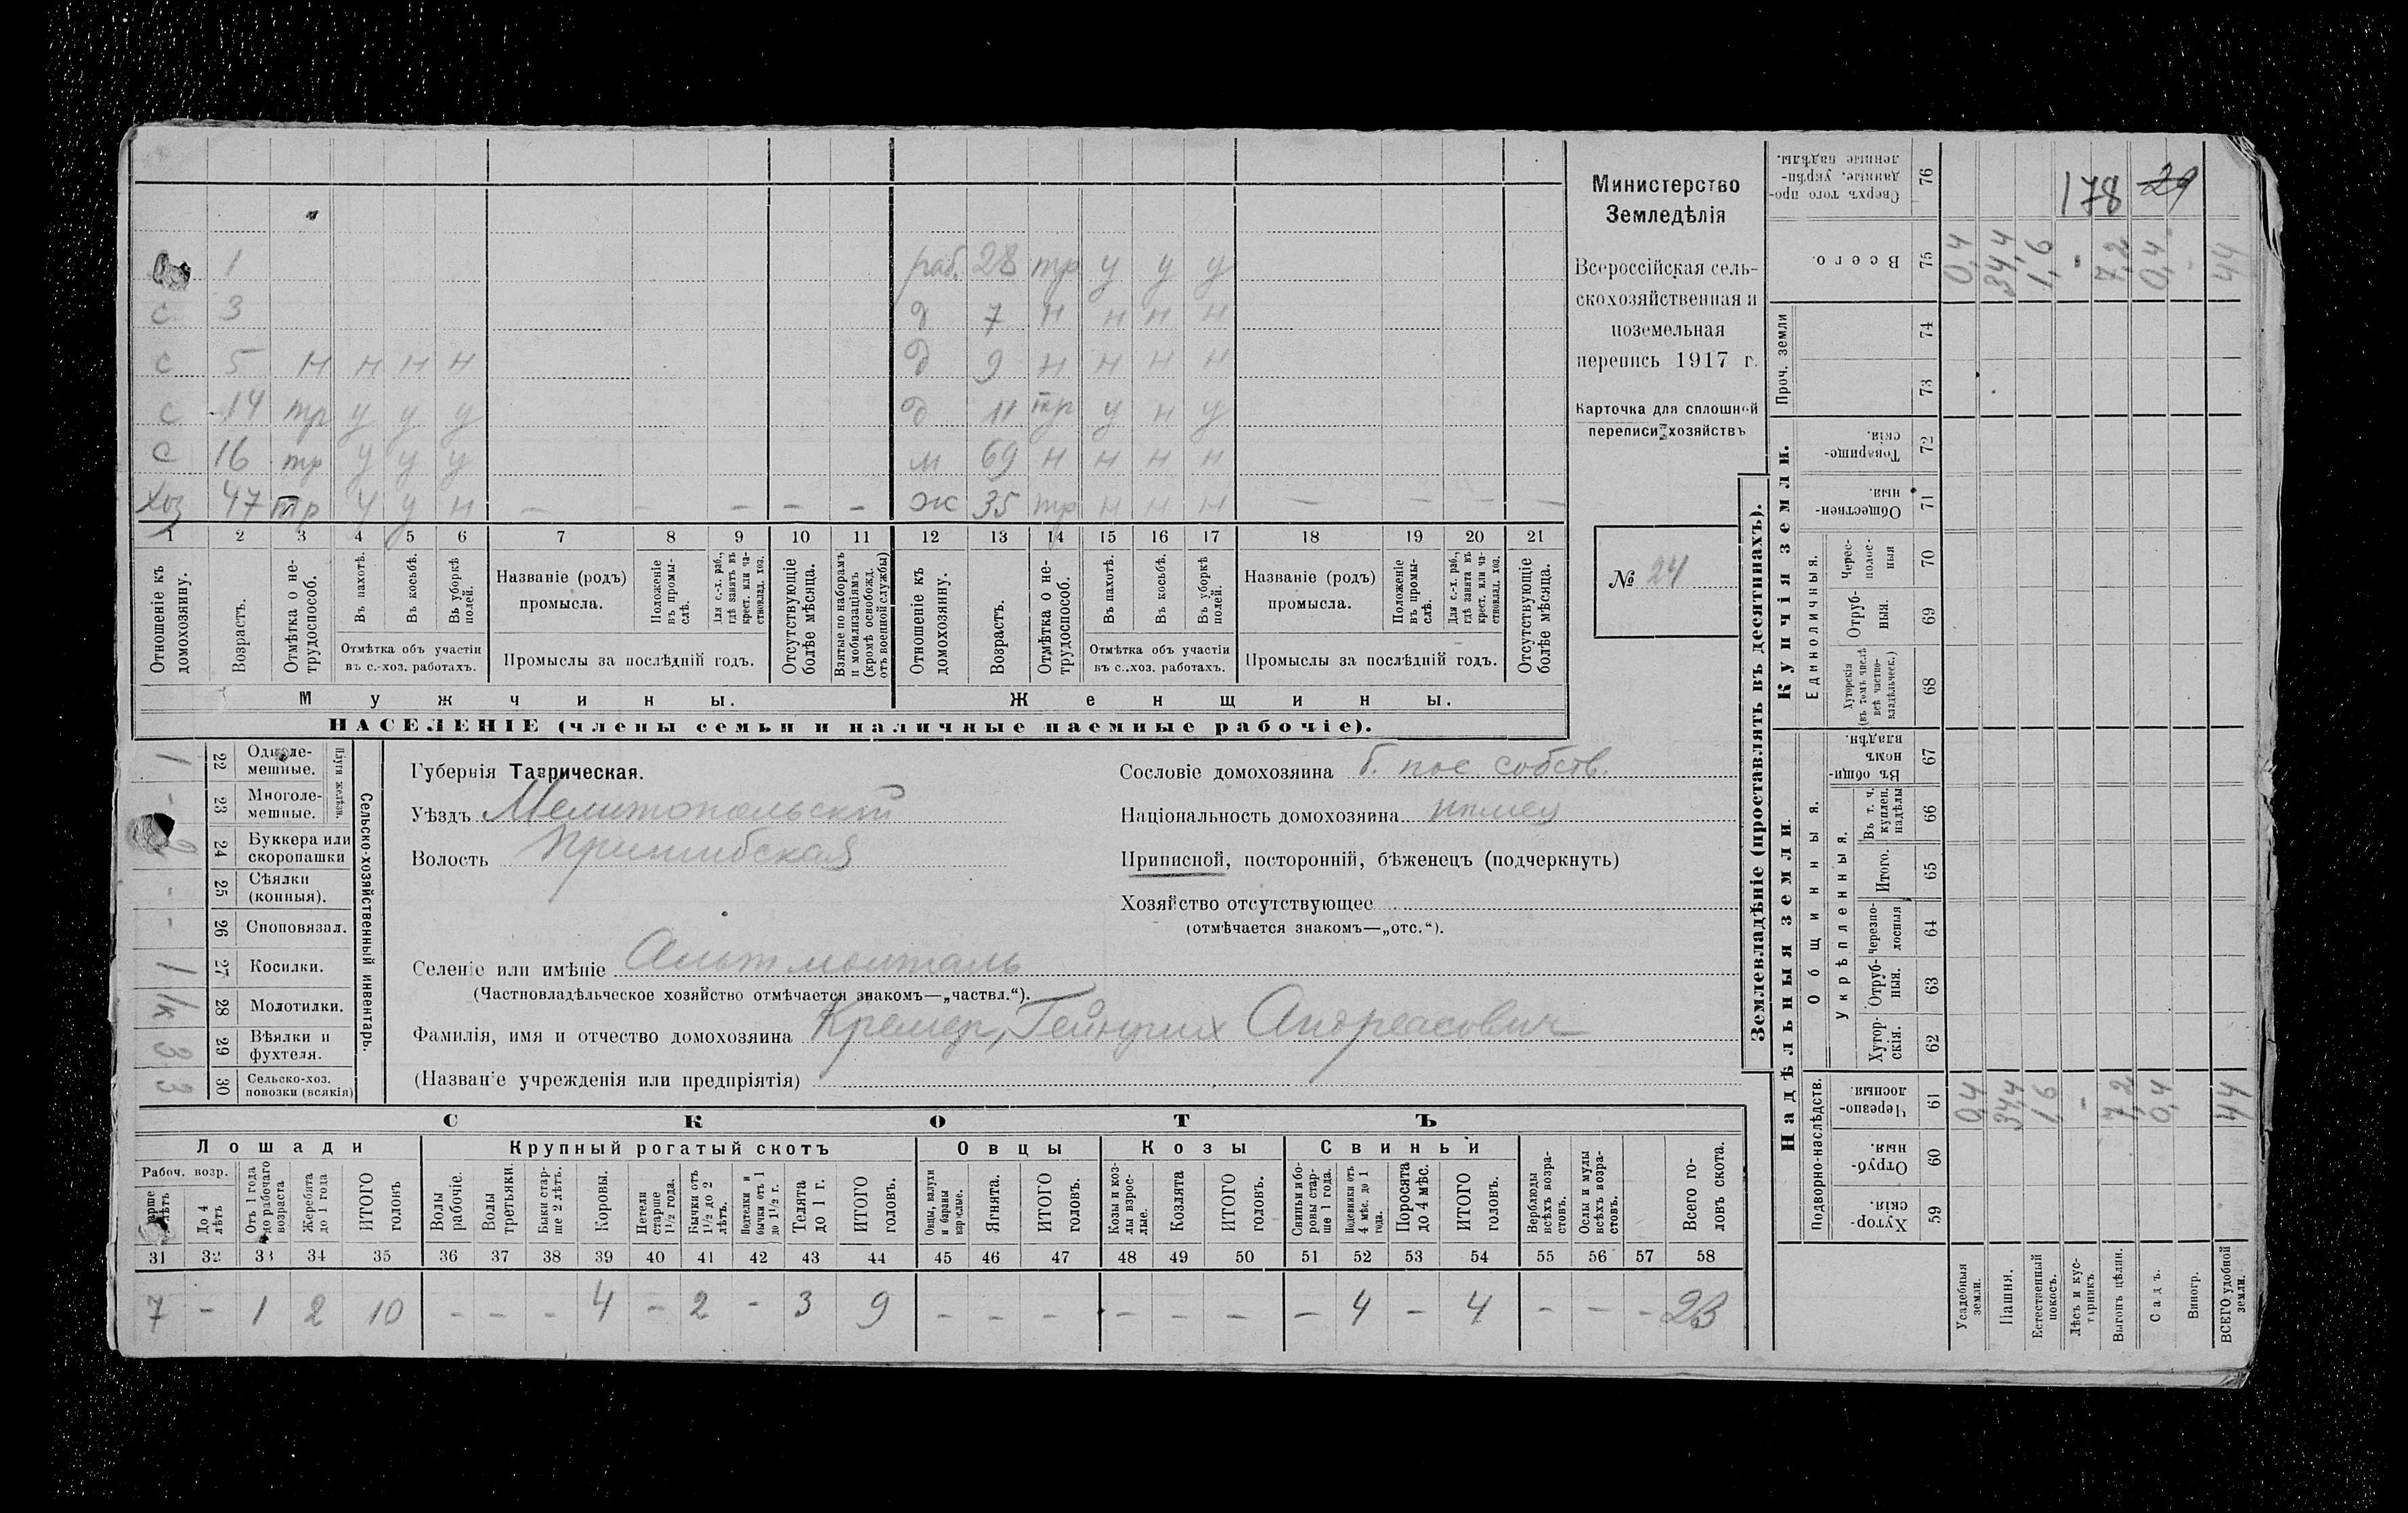 Министерство
Земледѣлія
Всероссійская сель-
скохозяйственная и
поземельная
перепись 1917 г.
Карточка для сплошной
переписи хозяйствъ
№ 24
178 29
1 раб. 28 тр у у у
с 3 д 7 н н н н
с 5 н н н н д 9 н н н н
с 14 тр у у у д 11 тр у н у
с 16 тр у у у м 69 н н н н
хоз 47 тр у у н — — — — — ж 35 тр н н н — — — —
1 2 3 4 5 6 7 8 9 10 11 12 13 14 15 16 17 18 19 20 21
Отношеніе къ домохозяину.
Возрастъ.
Отмѣтка о не-трудоспособ.
Въ пахотѣ.
Въ косьбѣ.
Въ уборкѣ полей.
Отмѣтка объ участіи
въ с.-хоз. работахъ.
Названіе (родъ)
промысла.
Положеніе въ промы-слѣ.
Для с.-х. раб., гдѣ занятъ въ крест. или ча-стновлад. хоз.
Промыслы за послѣдній годъ.
Отсутствующіе болѣе мѣсяца.
Взятые по наборамъ и мобилизаціямъ (кромѣ освобожд. отъ военной службы)
Отношеніе къ домохозяину.
Возрастъ.
Отмѣтка о не-трудоспособ.
Въ пахотѣ.
Въ косьбѣ.
Въ уборкѣ полей.
Отмѣтка объ участіи
въ с.-хоз. работахъ.
Названіе (родъ)
промысла.
Положеніе въ промы-слѣ.
Для с.-х. раб., гдѣ занята въ крест. или ча-стновлад. хоз.
Промыслы за послѣдній годъ.
Отсутствующіе болѣе мѣсяца.
Мужчины. Женщины.
НАСЕЛЕНІЕ (члены семьи и наличные наемные рабочіе).
Сельско-хозяйственный инвентарь.
Плуги желѣзн.
22 Одноле-мешные. 1
23 Многоле-мешные. -
24 Буккера или скоропашки 2
25 Сѣялки (конныя). -
26 Сноповязал. -
27 Косилки. 1
28 Молотилки. 1к
29 Вѣялки и фухтеля. 3
30 Сельско-хоз. повозки (всякія) 3
Губернія Таврическая.
Уѣздъ Мелитопольскій
Волость Пришибская
Селеніе или имѣніе Альтмонталь
(Частновладѣльческое хозяйство отмѣчается знакомъ—„частвл.“).
Фамилія, имя и отчество домохозяина Кремер, Гейнрих Андреасович
(Названіе учрежденія или предпріятія)
Сословіе домохозяина б. пос собств.
Національность домохозяина нѣмец
Приписной, посторонній, бѣженецъ (подчеркнуть)
Хозяйство отсутствующее
(отмѣчается знакомъ—„отс.“).
СКОТЪ
Лошади Крупный рогатый скотъ Овцы Козы Свиньи
Рабоч. возр.
До 4 лѣтъ
Отъ 1 года до рабочаго возраста
Жеребята до 1 года
ИТОГО головъ
Волы рабочіе.
Волы третьяки.
Быки стар-ше 2 лѣтъ.
Коровы.
Нетели старше 1 1/2 года.
Бычки отъ 1 1/2 до 2 лѣтъ.
Подтелки и бычки отъ 1 до 1 1/2 г.
Телята до 1 г.
ИТОГО головъ.
Овцы, валухи и бараны взрослые.
Ягнята.
ИТОГО головъ.
Козы и коз-лы взрос-лые.
Козлята
ИТОГО головъ.
Свиньи и бо-ровы стар-ше 1 года.
Подсвинки отъ 4 мѣс. до 1 года.
Поросята до 4 мѣс.
ИТОГО головъ.
Верблюды всѣхъ возра-стовъ.
Ослы и мулы всѣхъ возра-стовъ.
Всего го-ловъ скота.
31 32 33 34 35 36 37 38 39 40 41 42 43 44 45 46 47 48 49 50 51 52 53 54 55 56 57 58
7 - 1 2 10 - - - 4 - 2 - 3 9 - - - - - - - 4 - 4 - - - 23
Землевладѣніе (проставлять въ десятинахъ).
Надѣльныя земли. Купчія земли. Проч. земли
Подворно-наслѣдств. Общинныя. Единоличныя.
Укрѣпленныя.
59 Хутор-скія.
60 Отруб-ныя.
61 Черезпо-лосныя.
62 Хутор-скія.
63 Отруб-ныя.
64 Черезпо-лосныя
65 Итого.
66 Въ т. ч. куплен. надѣлы
67 Въ общи-номъ владѣн.
68 Хуторскія (въ томъ числѣ всѣ частно-владѣльческ.)
69 Отруб-ныя.
70 Черес-полос-ныя
71 Обществен-ныя.
72 Товарище-скія.
73
74
75 Всего.
76 Сверхъ того про-данные. укрѣп-ленные надѣлы.
Усадебныя земли. 0,4 0,4
Пашня. 34,4 34,4
Естественный покосъ. 1,6 1,6
Лѣсъ и кус-тарникъ - -
Выгонъ цѣлин. 7,2 7,2
Садъ. 0,4 0,4
Виногр. -
ВСЕГО удобной земли. 44 44